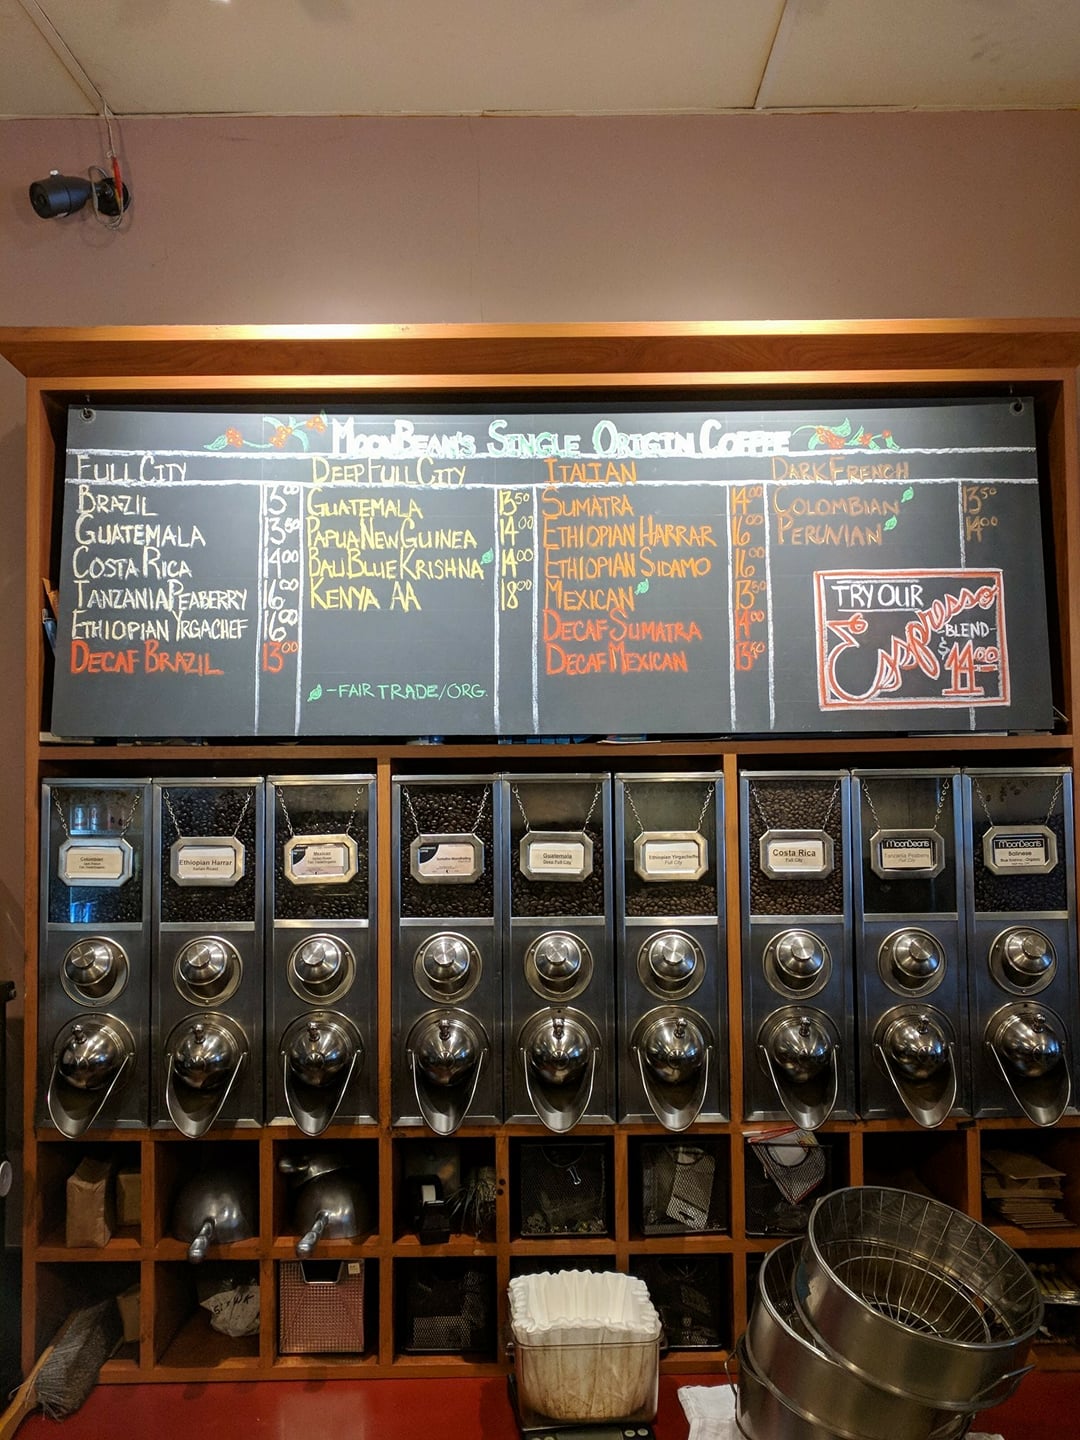 MOONBEAN'S SINGLE ORIGIN COFFEE
FULL CITY
BRAZIL 13.00
GUATEMALA 13.50
COSTA RICA 14.00
TANZANIA PEABERRY 16.00
ETHIOPIAN YRGACHEF 16.00
DECAF BRAZIL 13.00
DEEP FULL CITY
GUATEMALA 13.50
PAPUA NEW GUINEA 14.00
BALI BLUE KRISHNA 14.00
KENYA AA 18.00
-FAIR TRADE/ORG.
ITALIAN
SUMATRA 14.00
ETHIOPIAN HARRAR 16.00
ETHIOPIAN SIDAMO 16.00
MEXICAN 13.50
DECAF SUMATRA 14.00
DECAF MEXICAN 13.50
DARK FRENCH
COLOMBIAN 13.50
PERUVIAN 14.00
TRY OUR
Espresso
-BLEND-
$14.00
Colombian
Ethiopian Harrar
Italian Roast
Mexican
Guatemala
Deep Full City
Ethiopian Yirgacheffe
Full City
Costa Rica
Full City
MoonBeans
Tanzania Peaberry
Full City
MoonBeans
Balinese